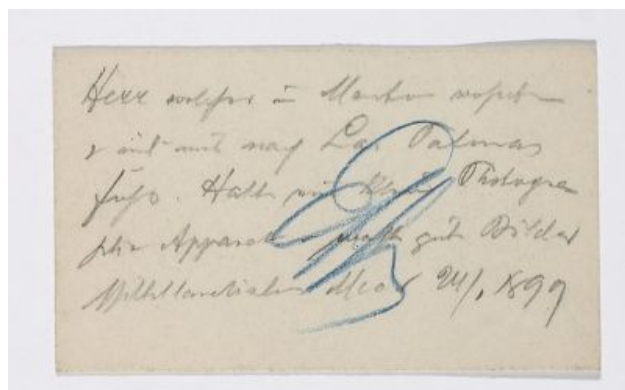 Herr welcher in Mentone wohnte
u mit uns nach Las Palmas
fuhr. Hatte ein klein Photogra
phie Apparat u machte gute Bilder
Mittelländisches Meer 24/, 1899